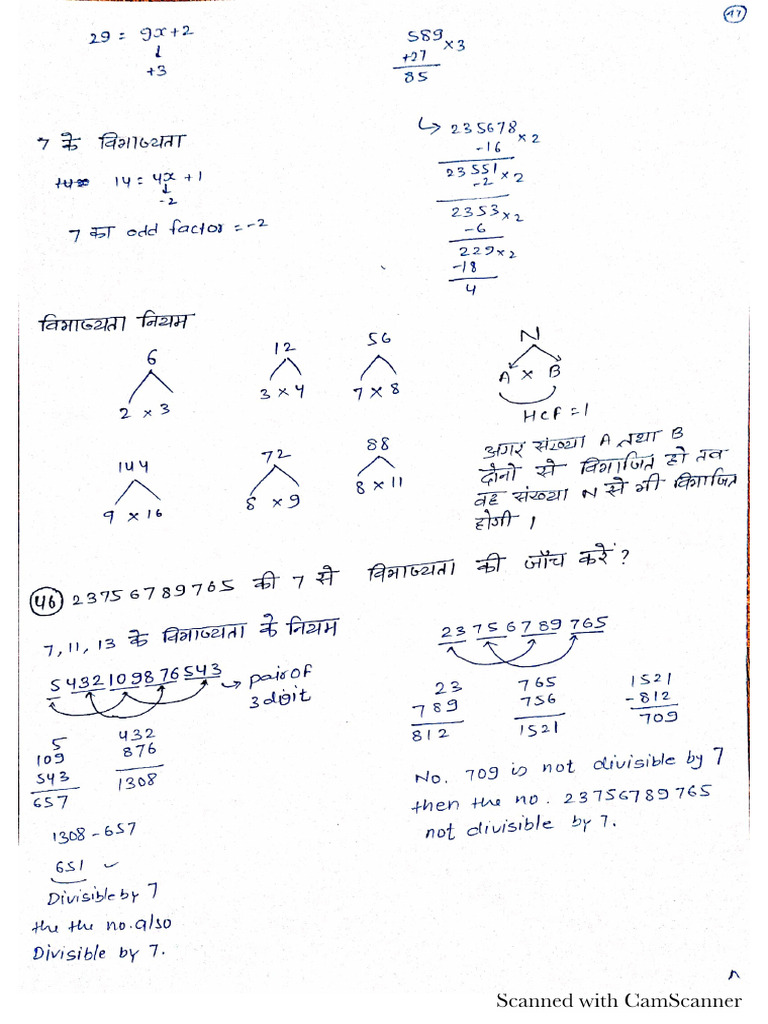 97
29 = 9x+2
+3
589 ×3
+27
85
7 के विभाज्यता
14 = 4x+1
-2
7 का odd factor = -2
235678 ×2
-16
23551 ×2
-2
2353 ×2
-6
229 ×2
-18
4
विभाज्यता नियम
6
2 × 3
12
3 × 4
56
7 × 8
N
A × B
HCF = 1
144
9 × 16
72
8 × 9
88
8 × 11
अगर संख्या A तथा B
दोनो से विभाजित हो तब
वह संख्या N से भी विभाजित
होगी ।
46 23756789765 की 7 से विभाज्यता की जाँच करें ?
7, 11, 13 के विभाज्यता के नियम
5432109876543 → pair of
3 digit
5
109
543
657
432
876
1308
1308 - 657
651 ✓
Divisible by 7
the the no. also
Divisible by 7.
23756789765
23
789
812
765
756
1521
1521
-812
709
No. 709 is not divisible by 7
then the no. 23756789765
not divisible by 7.
Scanned with CamScanner